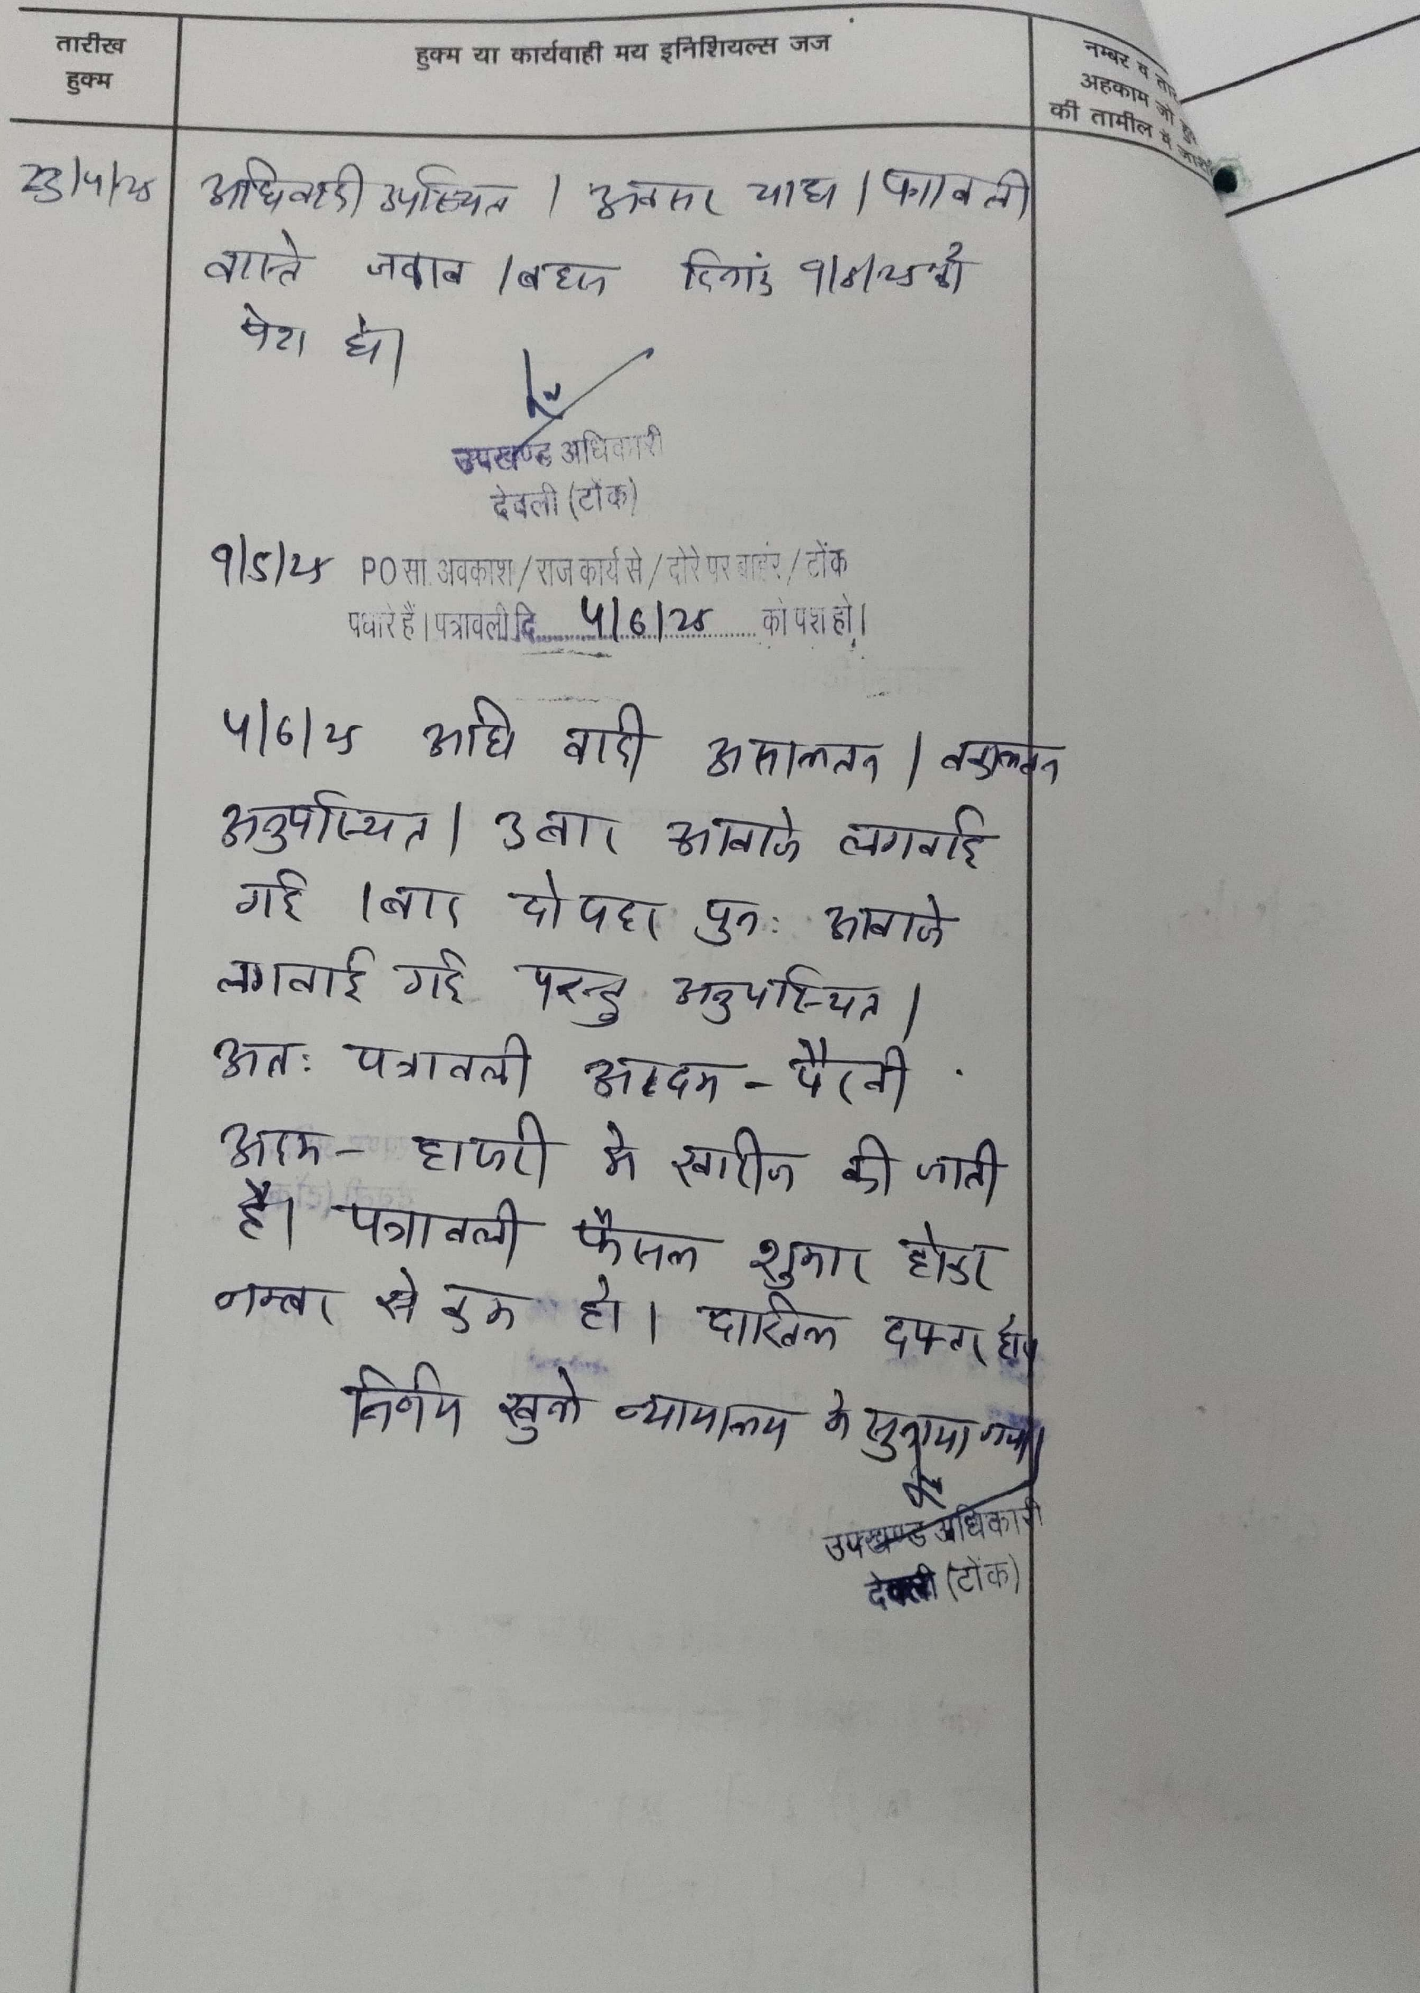 तारीख
हुक्म
हुक्म या कार्यवाही मय इनिशियल्स जज
नम्बर व
अहकाम जो
की तामील में
23/4/25 अधिवादी उपस्थित । अवसर चाहा । पत्रावली
वास्ते जवाब / बहस दिनांक 9/5/25 को
पेश हो।
उपखण्ड अधिकारी
देवली (टोंक)
9/5/25 PO सा. अवकाश / राज कार्य से / दौरे पर बाहर / टोंक
पधारे हैं। पत्रावली दि 4/6/25 को पेश हो।
4/6/25 अधि वादी असालतन / वकालतन
अनुपस्थित। 3 बार आवाजे लगवाई
गई । बाद दोपहर पुनः आवाजे
लगवाई गई परन्तु अनुपस्थित।
अतः पत्रावली अदम - पैरवी
अदम - हाजरी मे खारीज की जाती
है। पत्रावली फैसल शुमार होकर
नम्बर से कम हो। दाखिल दफ्तर हो।
निर्णय खुले न्यायालय मे सुनाया गया।
उपखण्ड अधिकारी
देवली (टोंक)